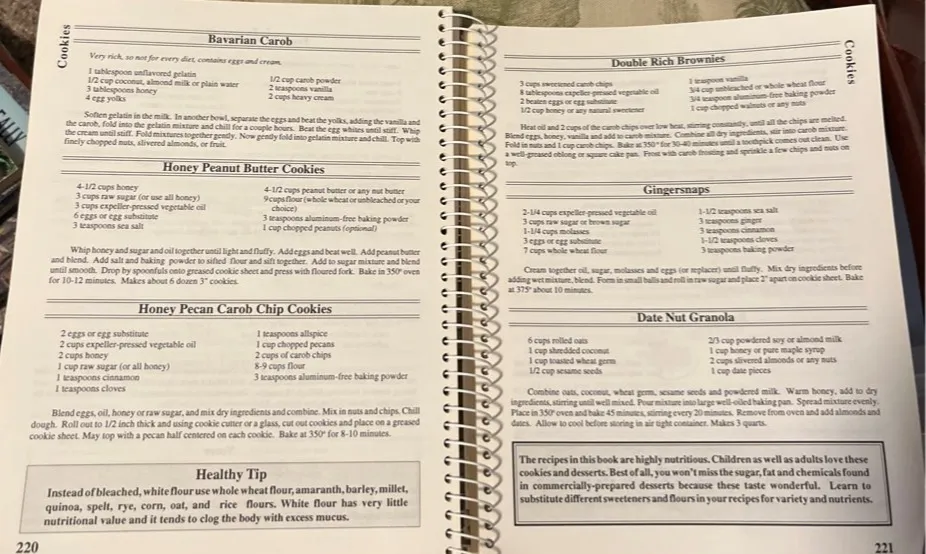 Cookies
Bavarian Carob
Very rich, so not for every diet, contains eggs and cream.
1 tablespoon unflavored gelatin
1/2 cup coconut, almond milk or plain water
3 tablespoons honey
4 egg yolks
1/2 cup carob powder
2 teaspoons vanilla
2 cups heavy cream
Soften gelatin in the milk. In another bowl, separate the eggs and beat the yolks, adding the vanilla and
the carob, fold into the gelatin mixture and chill for a couple hours. Beat the egg whites until stiff. Whip
the cream until stiff. Fold mixtures together gently. Now gently fold into gelatin mixture and chill. Top with
finely chopped nuts, slivered almonds, or fruit.
Honey Peanut Butter Cookies
4-1/2 cups honey
3 cups raw sugar (or use all honey)
3 cups expeller-pressed vegetable oil
6 eggs or egg substitute
3 teaspoons sea salt
4-1/2 cups peanut butter or any nut butter
9 cups flour (whole wheat or unbleached or your
choice)
3 teaspoons aluminum-free baking powder
1 cup chopped peanuts (optional)
Whip honey and sugar and oil together until light and fluffy. Add eggs and beat well. Add peanut butter
and blend. Add salt and baking powder to sifted flour and sift together. Add to sugar mixture and blend
until smooth. Drop by spoonfuls onto greased cookie sheet and press with floured fork. Bake in 350° oven
for 10-12 minutes. Makes about 6 dozen 3" cookies.
Honey Pecan Carob Chip Cookies
2 eggs or egg substitute
2 cups expeller-pressed vegetable oil
2 cups honey
1 cup raw sugar (or all honey)
1 teaspoons cinnamon
1 teaspoons cloves
1 teaspoons allspice
1 cup chopped pecans
2 cups of carob chips
8-9 cups flour
3 teaspoons aluminum-free baking powder
Blend eggs, oil, honey or raw sugar, and mix dry ingredients and combine. Mix in nuts and chips. Chill
dough. Roll out to 1/2 inch thick and using cookie cutter or a glass, cut out cookies and place on a greased
cookie sheet. May top with a pecan half centered on each cookie. Bake at 350° for 8-10 minutes.
Healthy Tip
Instead of bleached, white flour use whole wheat flour, amaranth, barley, millet,
quinoa, spelt, rye, corn, oat, and rice flours. White flour has very little
nutritional value and it tends to clog the body with excess mucus.
220
Cookies
Double Rich Brownies
3 cups sweetened carob chips
8 tablespoons expeller-pressed vegetable oil
2 beaten eggs or egg substitute
1/2 cup honey or any natural sweetener
1 teaspoon vanilla
3/4 cup unbleached or whole wheat flour
3/4 teaspoon aluminum-free baking powder
1 cup chopped walnuts or any nuts
Heat oil and 2 cups of the carob chips over low heat, stirring constantly, until all the chips are melted.
Blend eggs, honey, vanilla and add to carob mixture. Combine all dry ingredients, stir into carob mixture.
Fold in nuts and 1 cup carob chips. Bake at 350° for 30-40 minutes until a toothpick comes out clean. Use
a well-greased oblong or square cake pan. Frost with carob frosting and sprinkle a few chips and nuts on
top.
Gingersnaps
2-1/4 cups expeller-pressed vegetable oil
3 cups raw sugar or brown sugar
1-1/4 cups molasses
3 eggs or egg substitute
7 cups whole wheat flour
1-1/2 teaspoons sea salt
3 teaspoons ginger
3 teaspoons cinnamon
1-1/2 teaspoons cloves
3 teaspoons baking powder
Cream together oil, sugar, molasses and eggs (or replacer) until fluffy. Mix dry ingredients before
adding wet mixture, blend. Form in small balls and roll in raw sugar and place 2" apart on cookie sheet. Bake
at 375° about 10 minutes.
Date Nut Granola
6 cups rolled oats
1 cup shredded coconut
1 cup toasted wheat germ
1/2 cup sesame seeds
2/3 cup powdered soy or almond milk
1 cup honey or pure maple syrup
2 cups slivered almonds or any nuts
1 cup date pieces
Combine oats, coconut, wheat germ, sesame seeds and powdered milk. Warm honey, add to dry
ingredients, stirring until well mixed. Pour mixture into large well-oiled baking pan. Spread mixture evenly.
Place in 350° oven and bake 45 minutes, stirring every 20 minutes. Remove from oven and add almonds and
dates. Allow to cool before storing in air tight container. Makes 3 quarts.
The recipes in this book are highly nutritious. Children as well as adults love these
cookies and desserts. Best of all, you won't miss the sugar, fat and chemicals found
in commercially-prepared desserts because these taste wonderful. Learn to
substitute different sweeteners and flours in your recipes for variety and nutrients.
221